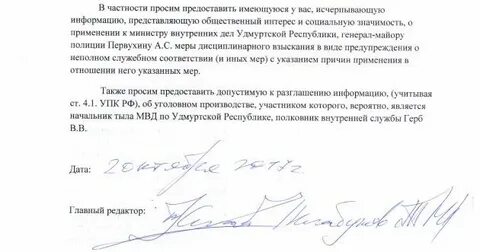 В частности просим предоставить имеющуюся у вас, исчерпывающую
информацию, представляющую общественный интерес и социальную значимость, о
применении к министру внутренних дел Удмуртской Республики, генерал-майору
полиции Первухину А.С. меры дисциплинарного взыскания в виде предупреждения о
неполном служебном соответствии (и иных мер) с указанием причин применения в
отношении него указанных мер.
Также просим предоставить допустимую к разглашению информацию, (учитывая
ст. 4.1. УПК РФ), об уголовном производстве, участником которого, вероятно, является
начальник тыла МВД по Удмуртской Республике, полковник внутренней службы Герб
В.В.
Дата: 2 октября 2017г
Главный редактор: